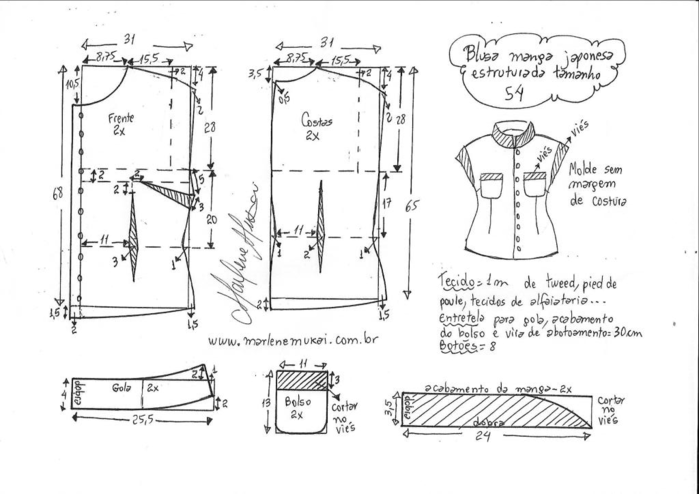 31
8,75
15,5
2
4
10,5
2
Frente
2x
28
2
2
2
5
3
68
20
11
3
1
1,5
2
1,5
31
8,75
15,5
3,5
2
4
0,5
2
Costas
2x
28
17
65
11
1
2
1
2
1,5
Marlene Mukai
www.marlenemukai.com.br
Blusa manga japonesa
estruturada tamanho
54
viés
viés
Molde sem
margem
de costura
Tecido=1m de tweed, pied de
poule, tecidos de alfaiataria...
Entretela para gola, acabamento
do bolso e vira de abotoamento=30cm
Botões=8
4
dobra
Gola
2x
2
1
2
25,5
11
3
13
Bolso
2x
Cortar
no
viés
acabamento da manga-2x
3,5
dobra
dobra
24
Cortar
no
viés